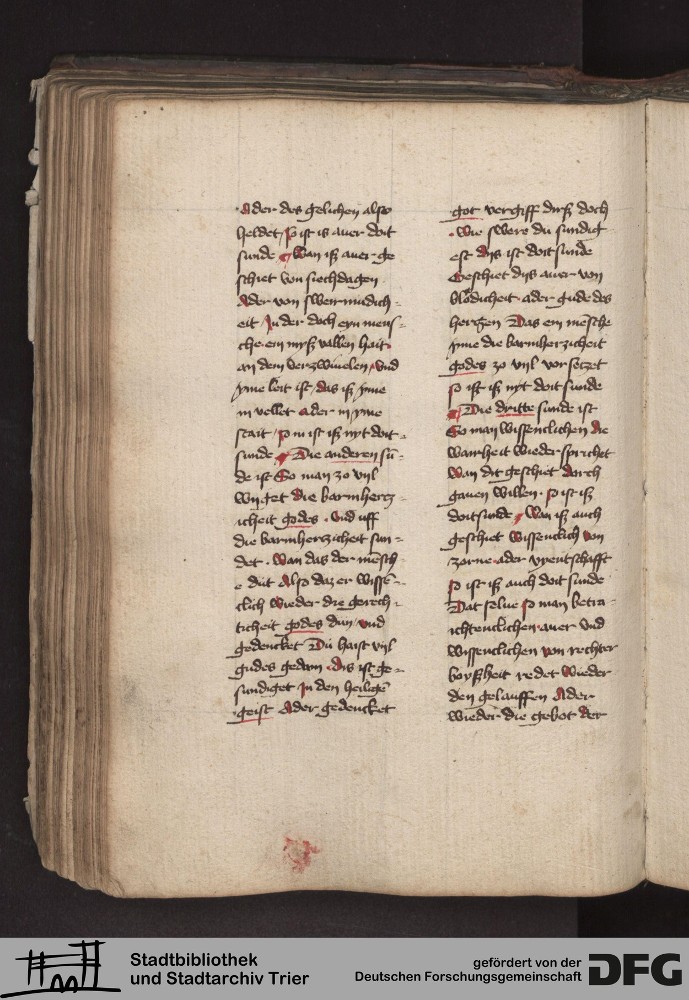 Ader des gelichen also
heldet so ist is auer doit
sunde Wan iß auer ge
schiet von siechdagen
Ader von swermudich-
eit Jn der doch eyn mens-
che ein myß vallen hait
an dem verzwiuelen vnd
yme leit ist das iß yme
in vellet Ader in yme
stait so in ist iß nyt doit-
sunde Die anderen su-
de ist So man zo vyl
wyget die barmhertz-
icheit godes vnd uff
die barmherzicheit sun-
det Wan das der mensch-
e duit Also daz er wisse-
clich wieder die gerech-
ticheit godes dun vnd
gedencket Du haist vyl
gudes gedain Dis ist ge-
sundiget Jn den heilige
geist Ader gedencket
got vergiff dirß doch
wie swere du sundig
est Dys ist doit sunde
Geschiet dys auer von
blodicheit ader gude des
hertzen Das ein mensche
yme die barmherzicheit
godes zo vyl vor setzet
so ist iß nyt doit sunde
Die dritte sunde ist
So man wissenclichen die
warheit wieder sprichet
Wan dit geschiet dorch
gauen willen so ist iß
doit sunde Wan iß auch
geschiet wissenclich von
zorne ader vyentschafft
so ist iß auch doit sunde
Dat selue so man betra-
ichtenclichen auer vnd
wissenclichen von rechter
boyßheit redet wieder
den gelauffen Ader
wieder die gebot der
Stadtbibliothek
und Stadtarchiv Trier
gefördert von der
Deutschen Forschungsgemeinschaft
DFG